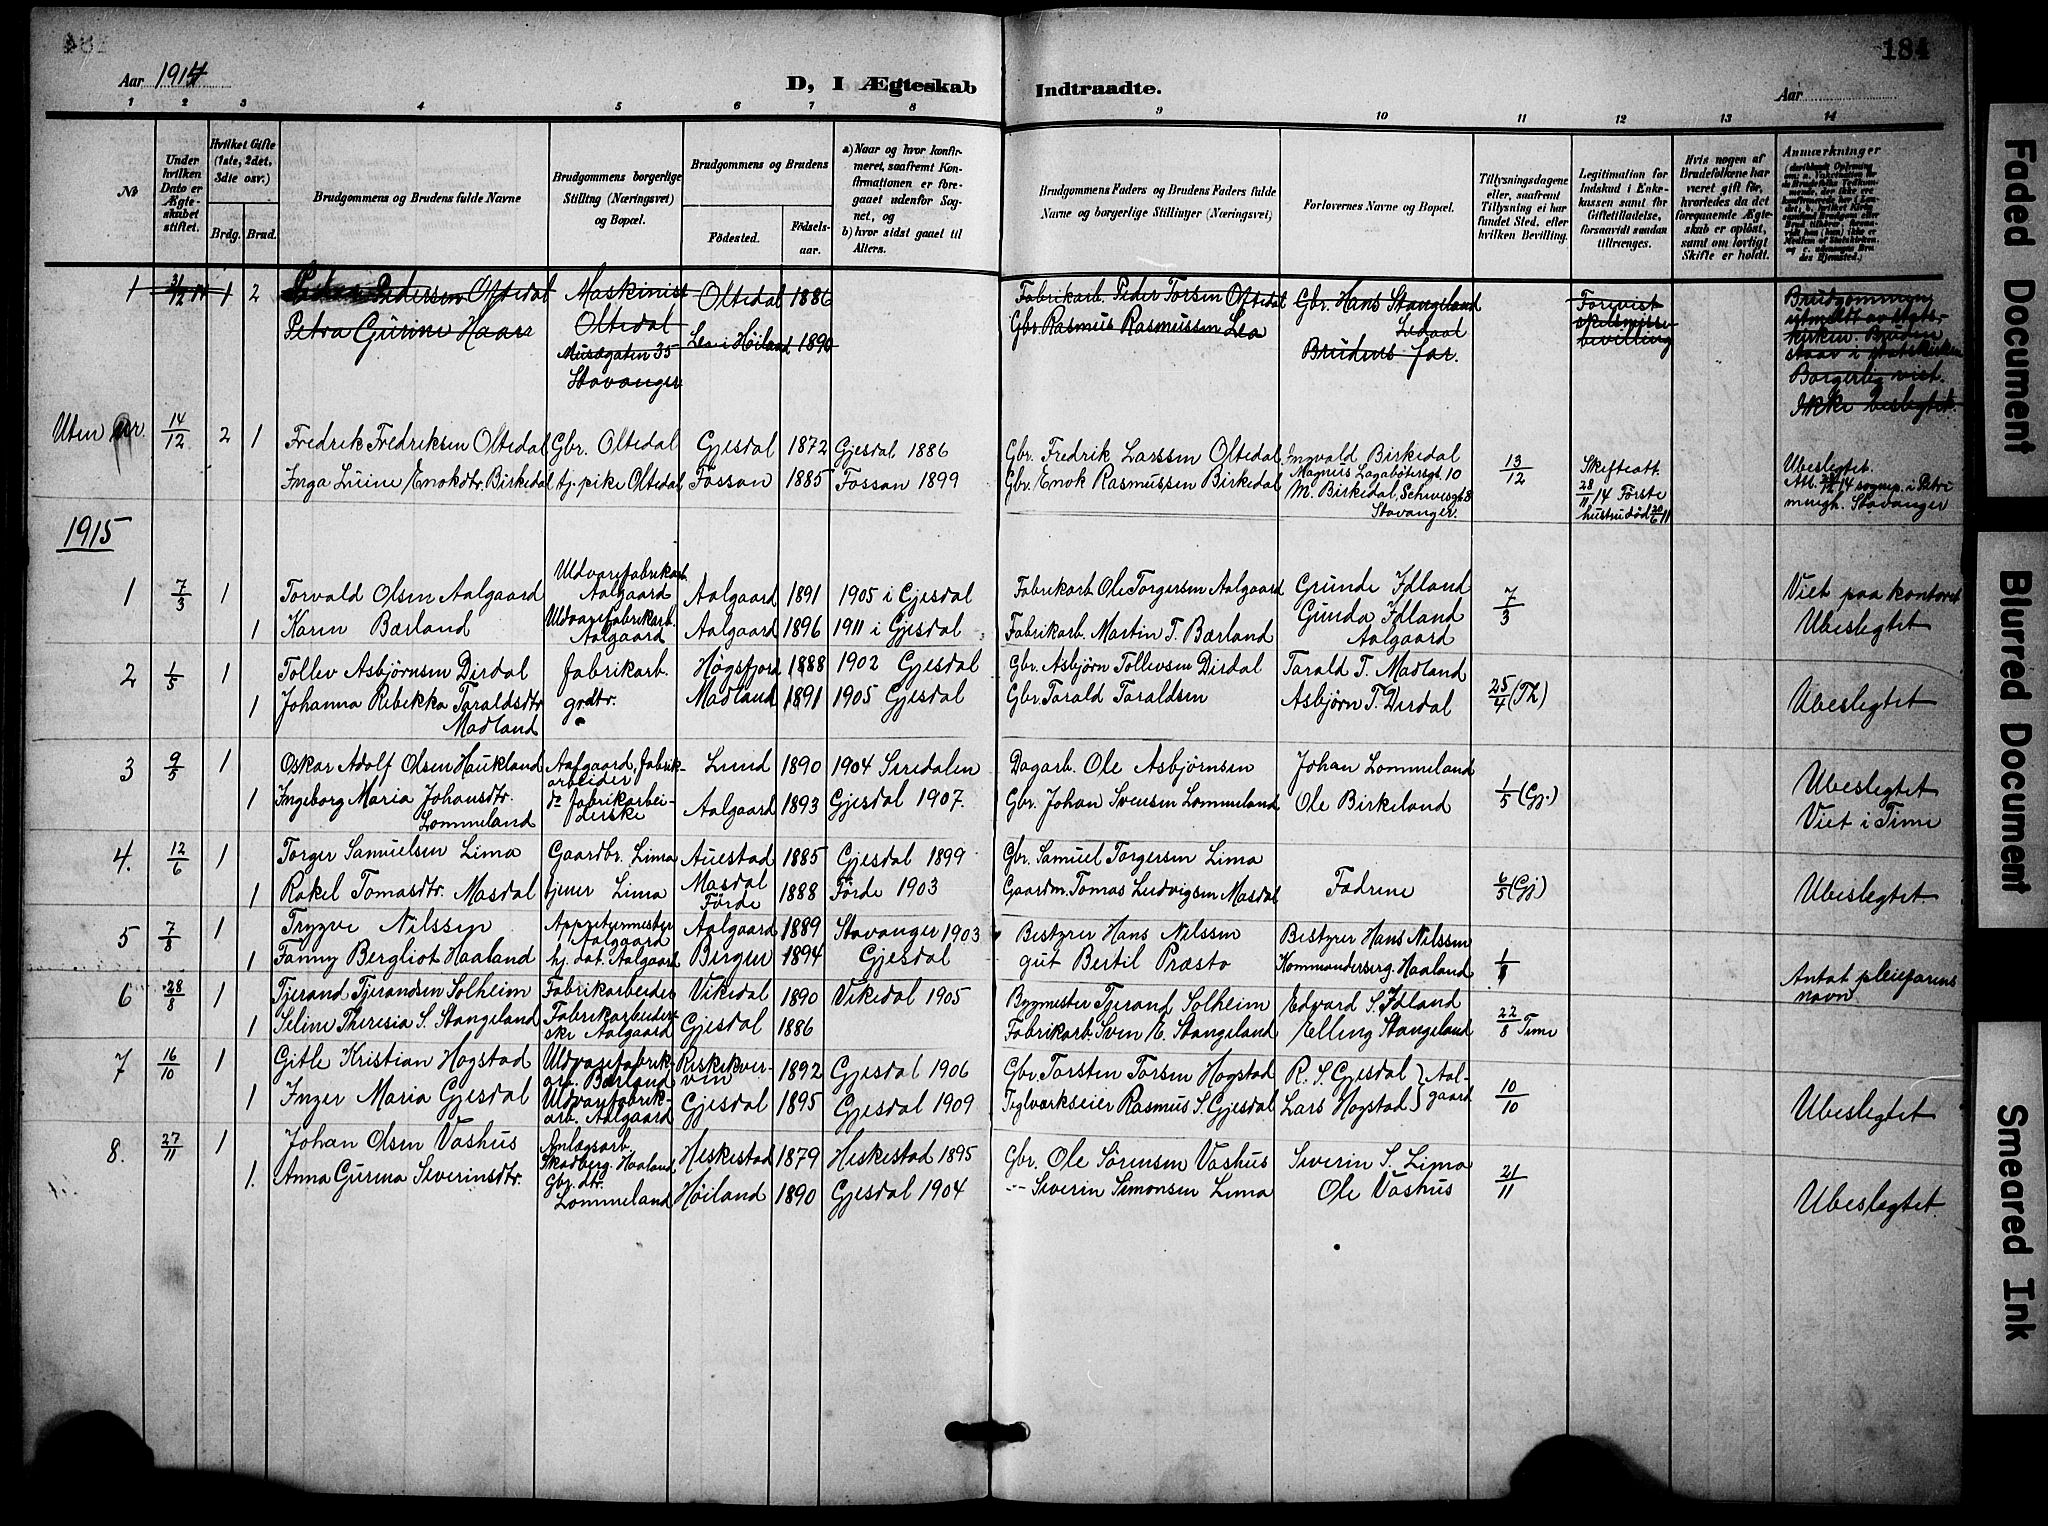 184
Aar 1914
D, I Ægteskab Indtraadte.
Aar
1 2 3 4 5 6 7 8 9 10 11 12 13 14
No
Under hvilken Dato er Ægteskabet stiftet.
Hvilket Gifte (1ste, 2det, 3die osv.)
Brdg. Brud.
Brudgommens og Brudens fulde Navne
Brudgommens borgerlige Stilling (Næringsvei) og Bopæl.
Brudgommens og Brudens
Fødested. Fødselsaar.
a) Naar og hvor konfirmeret, saafremt Konfirmationen er foregaaet udenfor Sognet, og
b) hvor sidst gaaet til Alters.
Brudgommens Faders og Brudens Faders fulde Navne og borgerlige Stillinger (Næringsvei)
Forlovernes Navne og Bopæl.
Tillysningsdagene eller, saafremt Tillysning ei har fundet Sted, efter hvilken Bevilling.
Legitimation for Indskud i Enkekassen samt for Giftetilladelse, forsaavidt saadan tiltrænges.
Hvis nogen af Brudefolkene har været gift før, hvorledes da det foregaaende Ægteskab er opløst, samt om lovligt Skifte er holdt.
Anmærkninger
1 31/12 14 1 2 Pedersen Oltedal Maskinist Oltedal 1886 Fabrikarb. Peder Torsen Oltedal Gbr. Hans Stangeland Forevist Brudgommen
Petra Gurine Haar Oltedal Lea i Høiland 1890 Gbr. Rasmus Rasmussen Lea skilsmisse- utmeldt av stats-
Musægaten 35 Brudens far. bevilling kirken. Bruden
Stavanger staar i statskirken
Borgerlig viet.
Ikke beslegtet.
Uten nr. 14/12 2 1 Fredrik Fredriksen Oltedal Gbr. Oltedal Gjesdal 1872 Gjesdal 1886 Gbr. Fredrik Larssen Oltedal Ingvald Birkedal 13/12 Skifteatt. Ubeslegtet.
Inga Luine Enokdtr. Birkedal tj. pike Oltedal Fossan 1885 Fossan 1899 Gbr. Enok Rasmussen Birkedal Magnus Lagabøtersgt. 10 28/11 14 Første Att. 14 sognep. i Petri
M. Birkedal, hustru død Stavanger
Stavanger.
1915
1 7/3 1 Torvald Olsen Aalgaard Uldvarefabrikarb. Aalgaard Aalgaard 1891 1905 i Gjesdal Fabrikarb. Ole Torgersen Aalgaard Grunde Idland 7/3 Viet paa kontoret
1 Karen Bærland Uldvarefabrikarb. Aalgaard Aalgaard 1896 1911 i Gjesdal Fabrikarb. Martin T. Bærland Gunda Idland Aalgaard Ubeslegtet
2 1/5 1 Tollev Asbjørnsen Dirdal fabrikarb. Høgsfjord 1888 1902 Gjesdal Gbr. Asbjørn Tollevsen Dirdal Tarald T. Madland
1 Johanna Rebekka Taraldsdtr. Madland grdtr. Madland 1891 1905 Gjesdal Gbr. Tarald Taraldsen Asbjørn T. Dirdal 25/4 (Th) Ubeslegtet
3 9/5 1 Oskar Adolf Olsen Haukland Aalgaard, fabrikarbeider Lund 1890 1904 Siredalen Dagarb. Ole Asbjørnsen Johan Lommeland Ubeslegtet
1 Ingeborg Maria Johansdtr. Lommeland do fabrikarbeiderske Aalgaard 1893 Gjesdal 1907. Gbr. Johan Svensen Lommeland Ole Birkeland 1/5 (Gj.) Viet i Time
4. 12/6 1 Torger Samuelsen Lima Gaardbr. Lima Auestad 1885 Gjesdal 1899 Gbr. Samuel Torgersen Lima
1 Rakel Tomasdtr. Masdal tjener Lima Masdal Førde 1888 Førde 1903 Gaardm. Tomas Ludvigsen Masdal Fædrene 6/5 (Gj) Ubeslegtet
5 7/8 1 Trygve Nilssen Appreturmester Aalgaard Aalgaard 1889 Stavanger 1903 Bestyrer Hans Nilssen Bestyrer Hans Nilssen
1 Fanny Bergliot Haaland hj. dat. Aalgaard Bergen 1894 Gjesdal gut Bertil Præsto Kommandersrg. Haaland 1/8 Antat pleiefarens navn
6 28/8 1 Tjerand Tjerandsen Solheim Fabrikarbeider Vikedal 1890 Vikedal 1905 Bygmester Tjerand Solheim Edvard S. Idland
1 Seline Theresia S. Stangeland Fabrikarbeiderske Aalgaard Gjesdal 1886 Fabrikarb. Sven E. Stangeland Elling Stangeland 22/8 Time
7 16/10 1 Gitle Kristian Hogstad Uldvarefabrikarb. Bærland Riskekvernen 1892 Gjesdal 1906 Gbr. Torsten Torsen Hogstad R. S. Gjesdal } Aal-
1 Inger Maria Gjesdal Uldvarefabrikarb. Aalgaard Gjesdal 1895 Gjesdal 1909 Teglværkseier Rasmus S. Gjesdal Lars Hogstad } gaard 10/10 Ubeslegtet
8. 27/11 1 Johan Olsen Vashus Anlægsarb. Skadberg, Haaland Heskestad 1879 Heskestad 1895 Gbr. Ole Sørensen Vashus Severin S. Lima
1. Anna Gurina Severinsdtr. Gbr. dtr. Lommeland Høiland 1890 Gjesdal 1904 -"- Severin Simonsen Lima Ole Vashus 21/11 Ubeslegtet.
Faded Document
Blurred Document
Smeared Ink